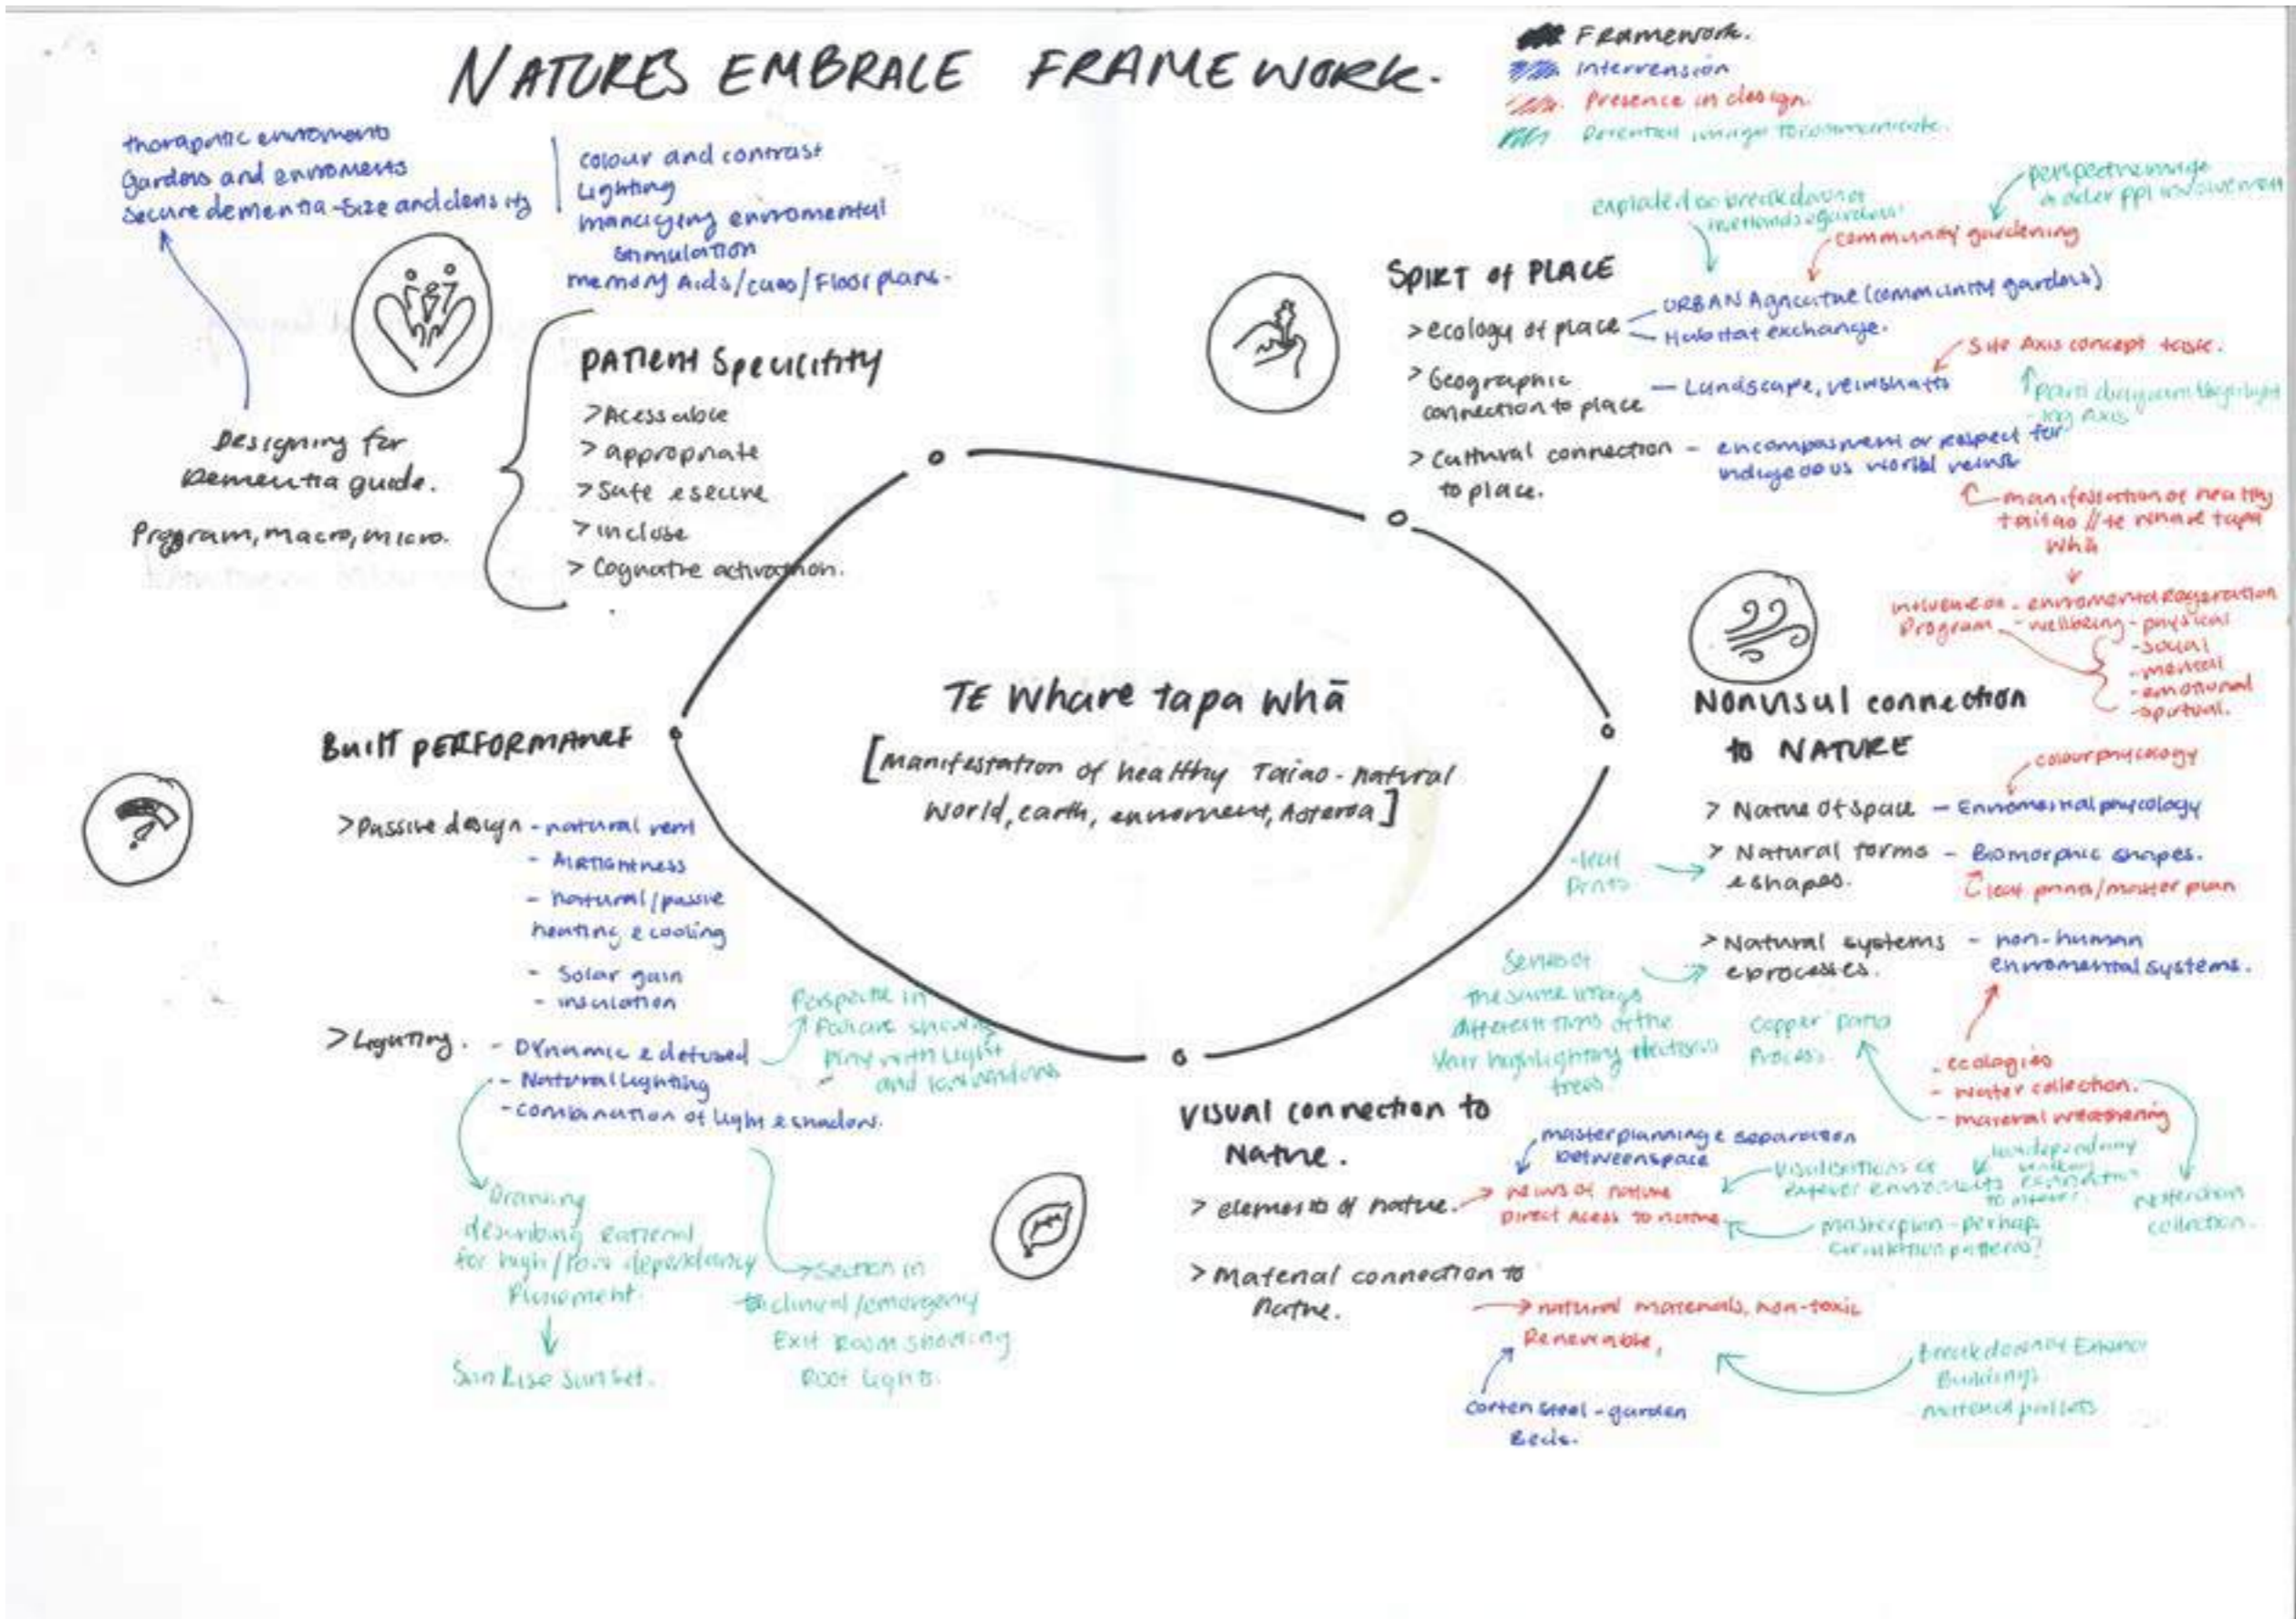 NATURES EMBRACE FRAMEWORK.
Framework.
Intervension
Presence in design.
Potential image to communicate.
gardens and enviroments
secure dementia - size and density
colour and contrast
Lighting
managing enviromental
stimulation
memory Aids/cues/Floor plans.
Designing for
Dementia guide.
Program, macro, micro.
PATIENT Specicifity
> Acessable
> appropriate
> Safe & secure
> incluse
> Cognative activation.
SPIRT of PLACE
perspective image
community gardening
> ecology of place
URBAN Agriculture (community gardens)
Habitat exchange.
> Geographic
connection to place
- Landscape,
Site Axis concept
> Cultural connection
to place.
- encompasment or respect for
manifestation of healthy
taitao // te whare tapa
whā
influence on
Program
- enviromental
- wellbeing - physical
- social
- mental
- emotional
- spirtual.
TE Whare tapa whā
[Manifestation of healthy Taiao - natural
World, earth, enviroment,]
Nonvisul connection
to NATURE
colour phycology
> Nature of space - Enviromental phycology
> Natural forms
& shapes.
- Biomorphic shapes.
leaf prints/master plan
-leaf
Prints.
> Natural systems
& processes.
- non-human
enviromental systems.
Series of
the same image
different times of the
Year highlighting
trees
Copper
Process.
- ecologies
- water collection.
- material weathering
collection.
Built PERFORMANCE
> Passive design - natural vent
- AIRTIGHTNESS
- natural/passive
heating & cooling
- Solar gain
- insulation
> Lighting.
- DYNAMIC & defused
- Natural Lighting
- combination of light & shadows.
Perspective in
showing
play with light
and
Drawing
describing rational
for high/low dependancy
Placement.
Sun Rise sun set.
Section in
clinical/emergency
Exit Room showing
Roof lights.
VISUAL connection to
Nature.
masterplanning & separation
between space
> elements of nature.
views of nature
Direct Acess to nature
masterplan - perhaps
circulation patterns?
> Material connection to
Nature.
natural materials, non-toxic
Renewable,
corten steel - garden
Beds.
breakdown of Exterior
Buildings
material pallets